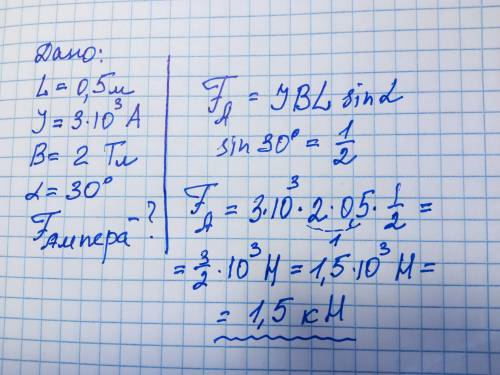 Дано:
L = 0,5м
J = 3·10³ А
B = 2 Тл
α = 30°
Fампера - ?
F_A = JBL sinα
sin 30° = 1/2
F_A = 3·10³·2·0,5·1/2 =
1
= 3/2·10³ Н = 1,5·10³ Н =
= 1,5 кН